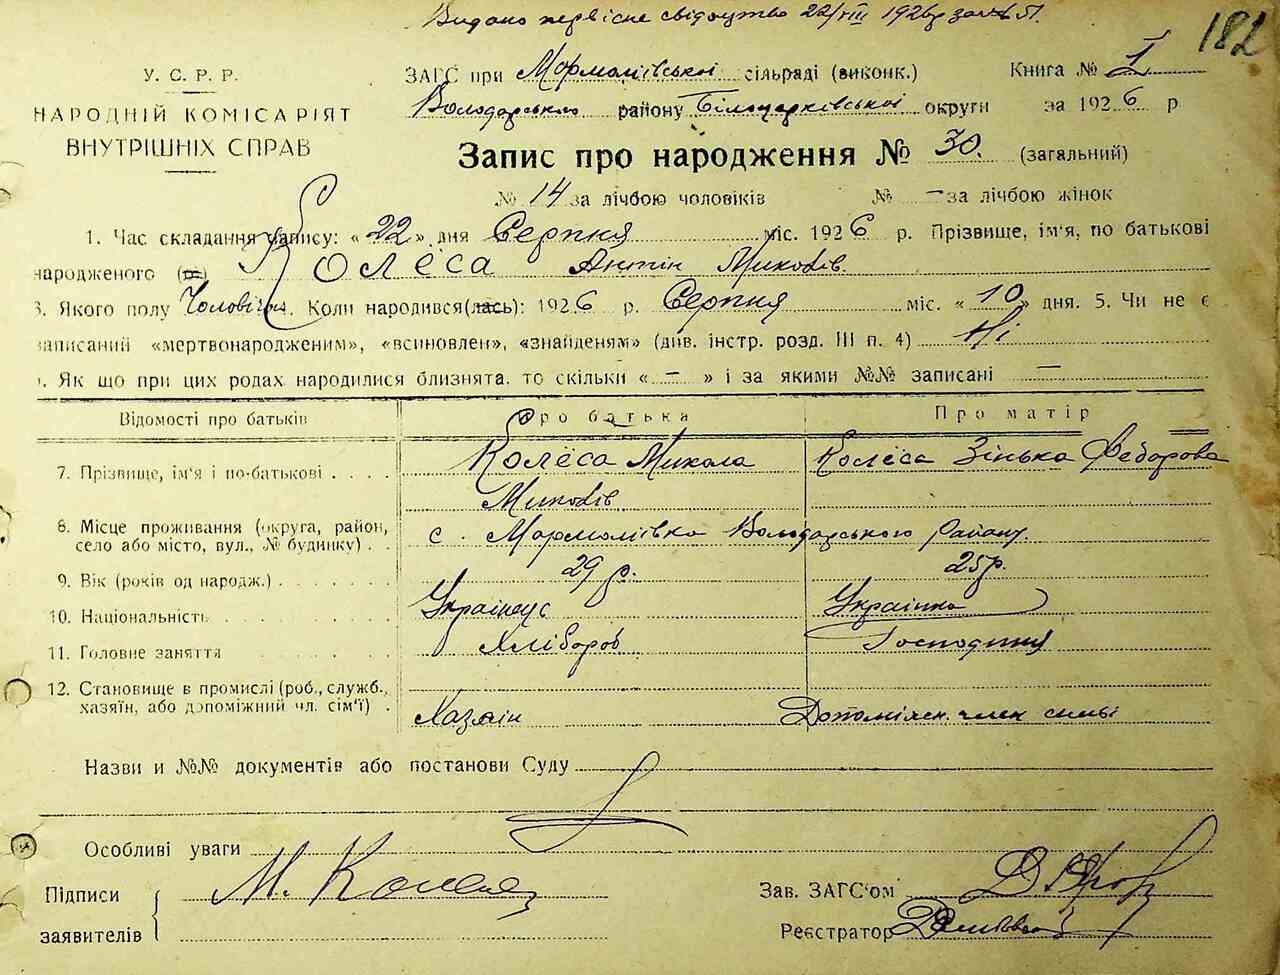 Видано первісне свідоцтво 22/VIII 1926 р за № 51.
182
У. С. Р. Р.
НАРОДНІЙ КОМІСАРІЯТ
ВНУТРІШНІХ СПРАВ
ЗАГС при Мормоліївської сільраді (виконк.) Книга № I
Володарського району Білоцерківської округи за 1926 р
Запис про народження № 30. (загальний)
№ 14 за лічбою чоловіків № — за лічбою жінок
1. Час складання запису: «22» дня Серпня міс. 1926 р. Прізвище, ім'я, по батькові
народженого (ої) Колеса Антін Миколів.
3. Якого полу Чоловічої. Коли народився(лась): 1926 р. Серпня міс. «10» дня. 5. Чи не є
записаний «мертвонародженим», «всиновлен», «знайденям» (див. інстр. розд. III п. 4) Ні
Як що при цих родах народилися близнята. то скільки « — » і за якими №№ записані —
Відомості про батьків Про батька Про матір
7. Прізвище, ім'я і по-батькові . . . . Колеса Микола Колеса Зінька Федорова
Миколів
8. Місце проживання (округа, район,
село або місто, вул., № будинку) . . с. Мормоліївка Володарського району.
9. Вік (років од народж.) . . . . . . . 29 р. 25 р.
10. Національність . . . . . . . Українец Українка
11. Головне заняття . . . . . . Хлібороб Господиня
12. Становище в промислі (роб., служб.,
хазяїн, або допоміжний чл. сім'ї) . Хазяін Допоміжн. член сим'ї
Назви и №№ документів або постанови Суду
Особливі уваги
Підписи М. Колеса Зав. ЗАГС'ом
заявителів Реєстратор